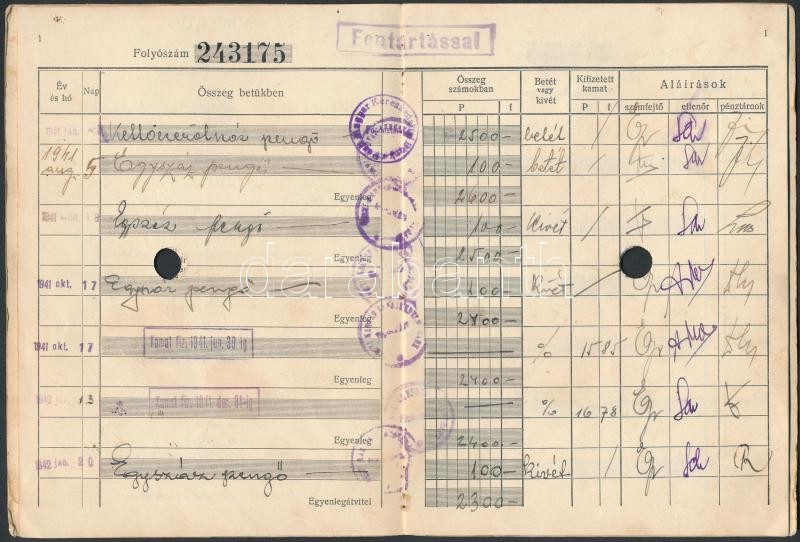 1 Fentartással 1
Folyószám 243175
Év és hó Nap Összeg betűkben Összeg számokban P f Betét vagy kivét Kifizetett kamat P f Aláírások számfejtő ellenőr pénztárnok
1941 jan. pengő 2500- betét /
1941 aug. 5 Egyszáz pengő 100.- betét /
Egyenleg 2600-
1941 18 Egyszáz pengő 100- Kivét /
Egyenleg 2500.-
1941 okt. 17 pengő 100- Kivét /
Egyenleg 2400-
1941 okt. 17 Kamat fiz. 1941. jun. 30 ig % 15 85
Egyenleg 2400-
1942 jan. 13 Kamat fiz. 1941. dec. 31-ig % 16 78
Egyenleg 2400.-
1942 jan. 20 Egyszáz pengő 100- kivét /
Egyenlegátvitel 2300.-
darabanth